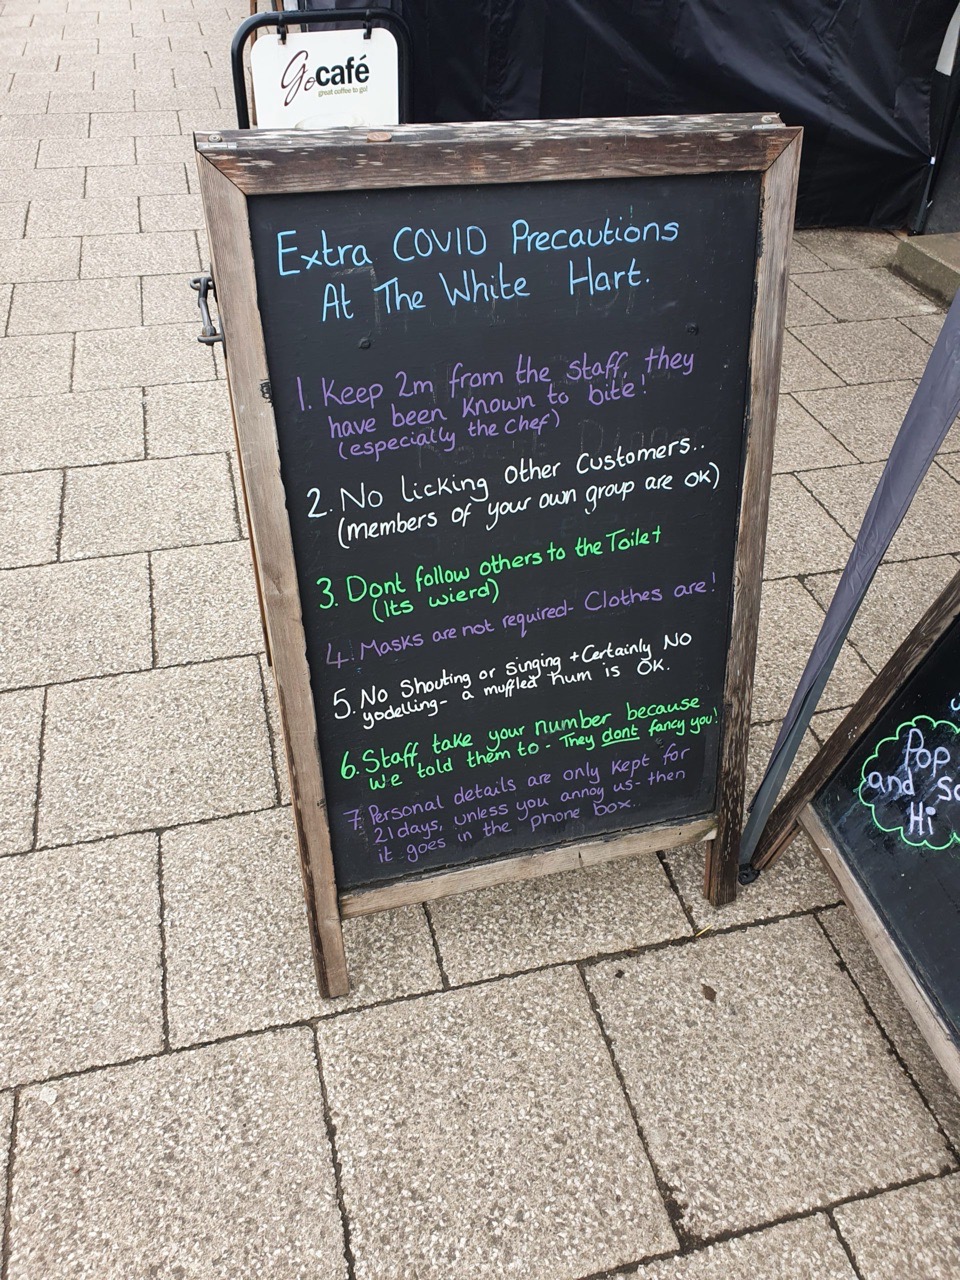 Go café
great coffee to go!
Extra COVID Precautions
At The White Hart.
1. Keep 2m from the staff, they
have been known to bite!
(especially the chef)
2. No licking other Customers..
(members of your own group are ok)
3. Dont follow others to the Toilet
(Its wierd)
4. Masks are not required- Clothes are!
5. No Shouting or singing + Certainly NO
yodelling- a muffled hum is OK.
6. Staff take your number because
we told them to - They dont fancy you!
7. Personal details are only kept for
21 days, unless you annoy us- then
it goes in the phone box..
Pop
and
Hi